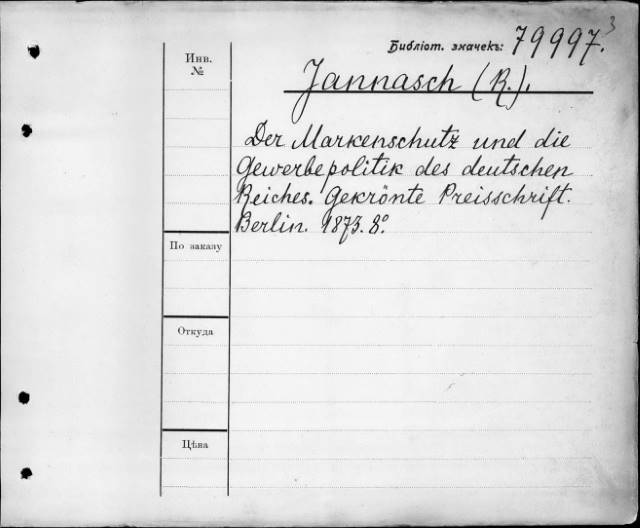 3
Библіот. значекъ: 79997.
Инв.
№
Jannasch (R.).
Der Markenschutz und die
Gewerbepolitik des deutschen
Reiches. Gekrönte Preisschrift.
Berlin. 1873. 8º
По заказу
Откуда
Цѣна